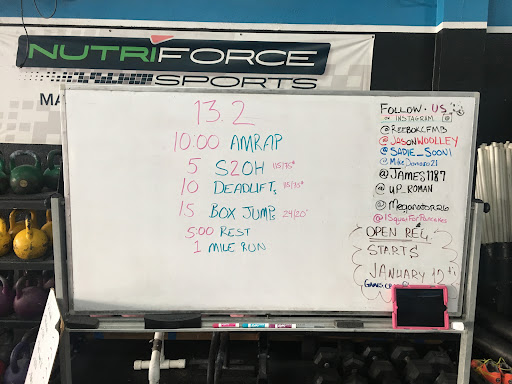 NUTRIFORCE
SPORTS
MA
13.2
10:00 AMRAP
5 S2OH 115/75#
10 DEADLIFTS 115/75#
15 BOX JUMPS 24/20"
5:00 REST
1 MILE RUN
FOLLOW US
ON INSTAGRAM
@REEBOKCFMB
@JASONWOOLLEY
@SADIE_SOONI
@MikeDamaso21
@JAMES1187
@UP_ROMAN
@Meganator26
@ISquatForPancakes
OPEN REG.
STARTS
JANUARY 12th